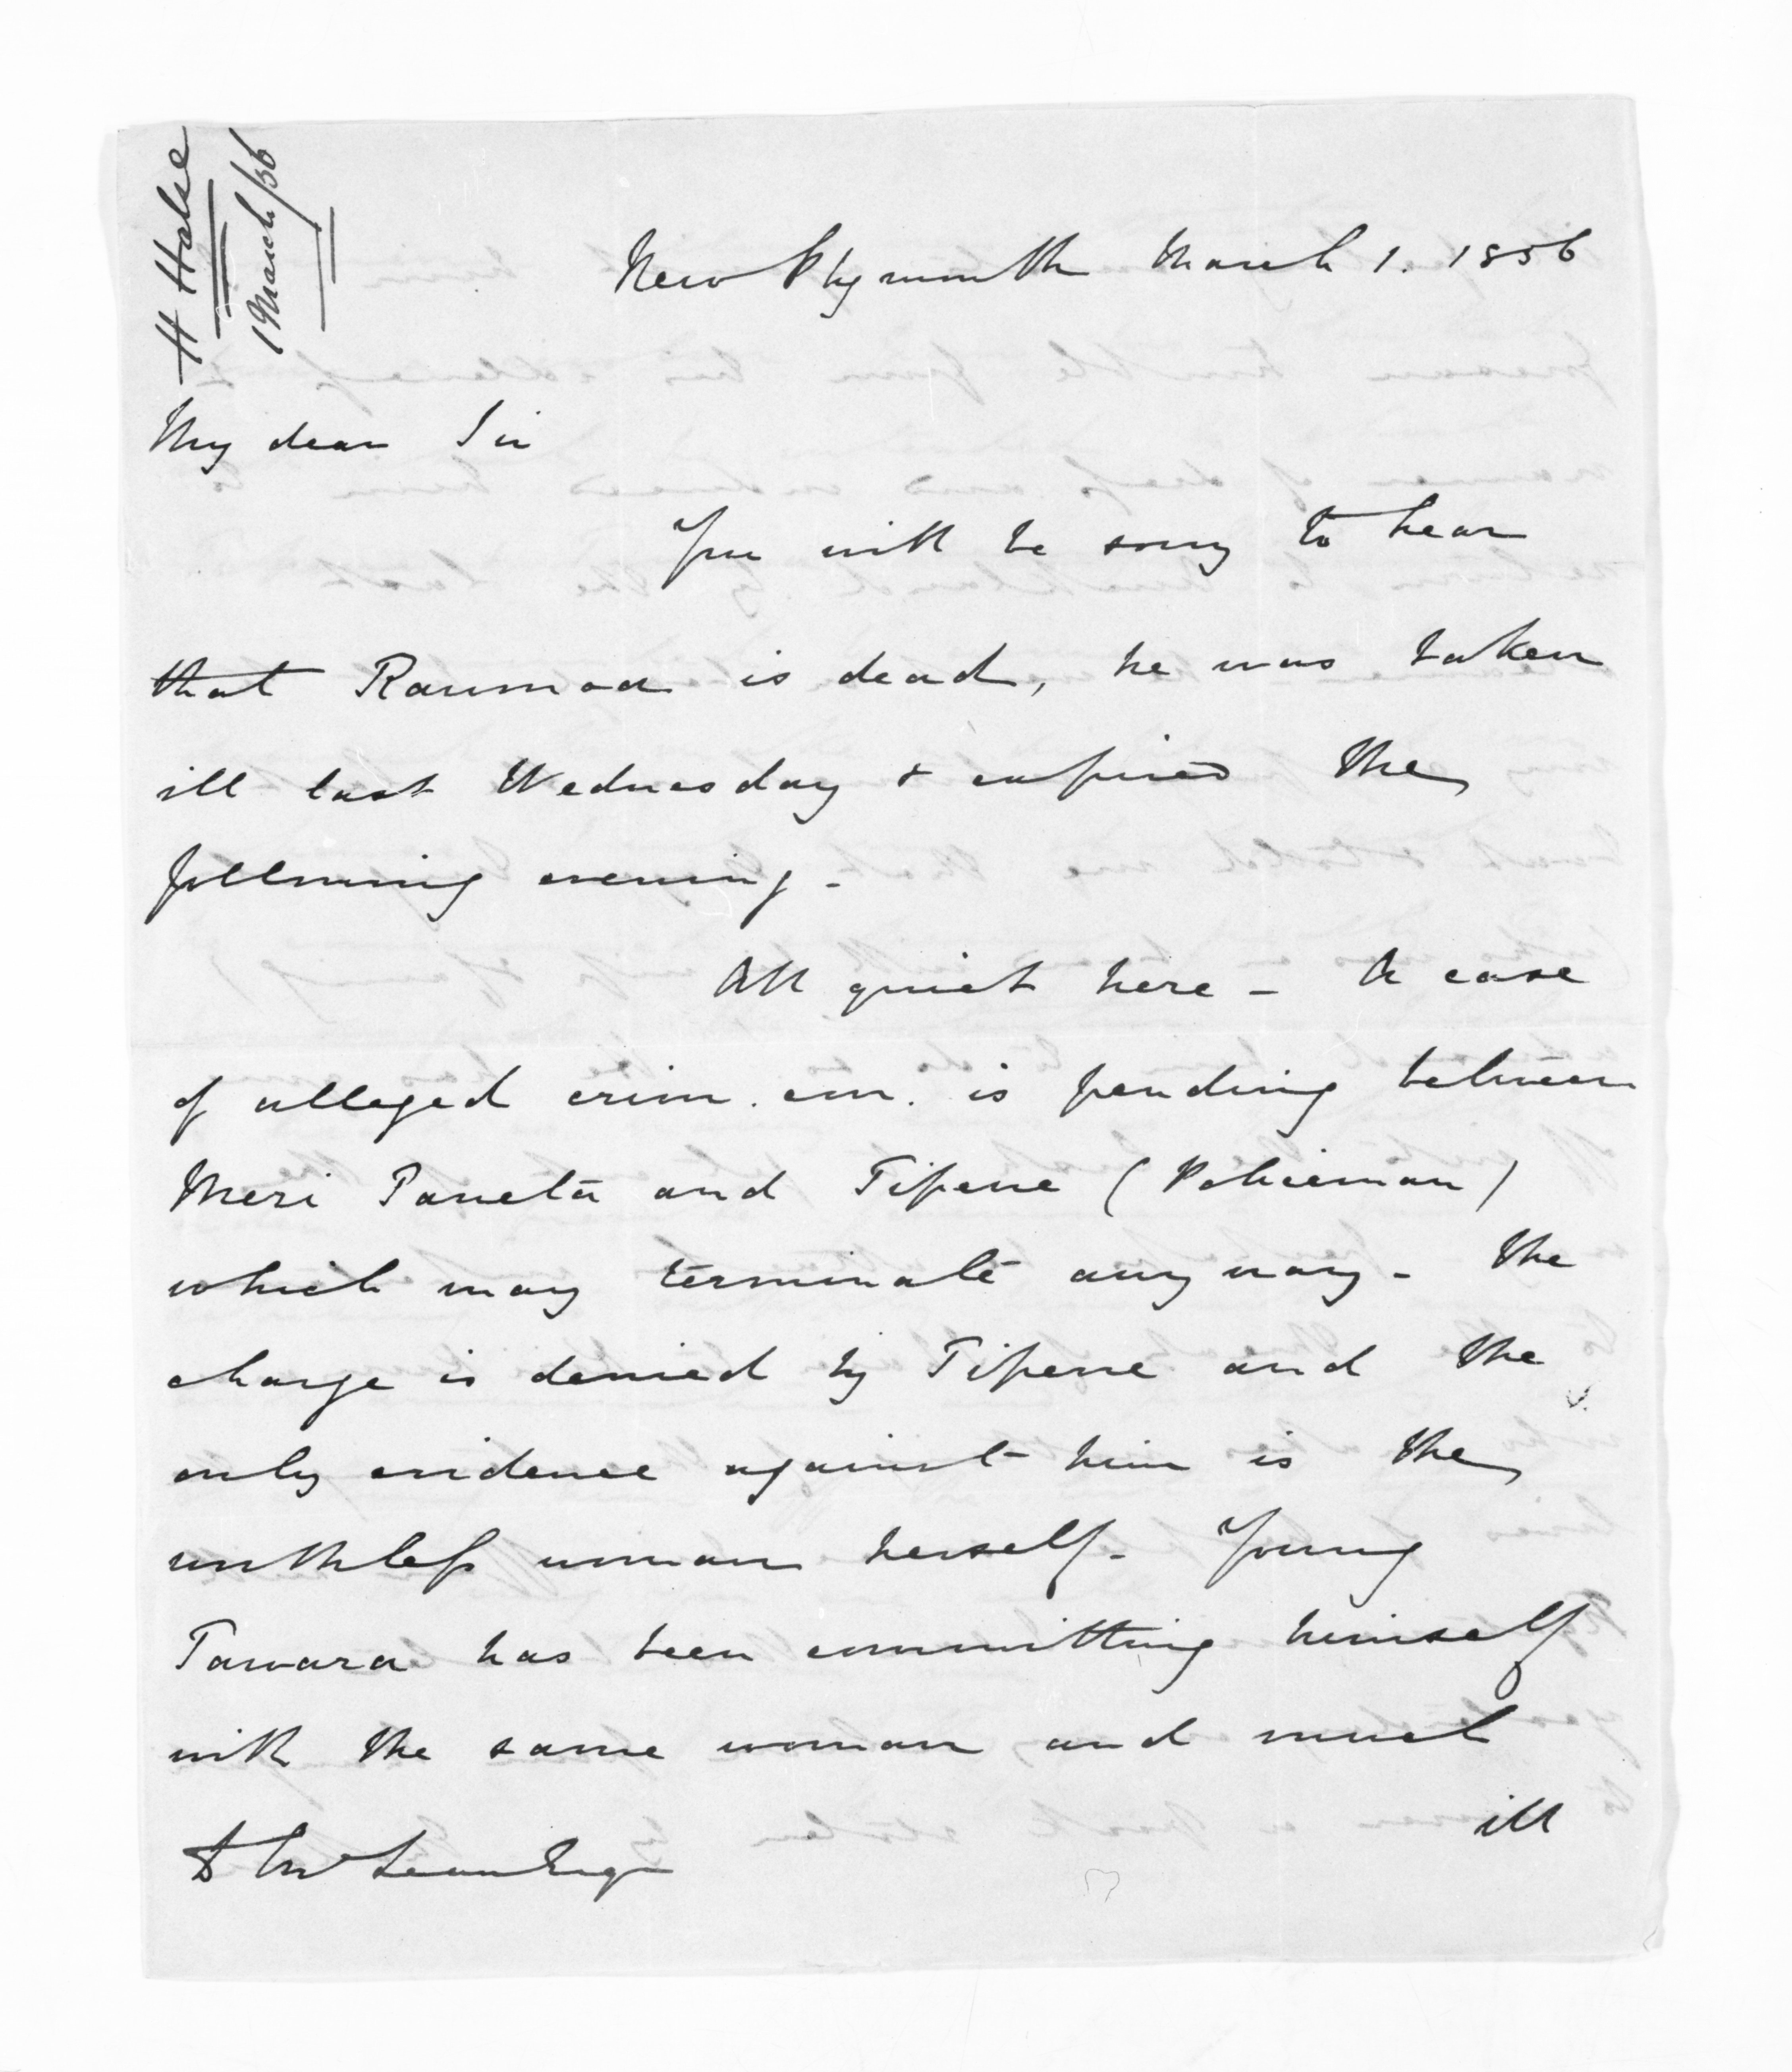 H Halse
1 March /56
New Plymouth March 1. 1856
My dear Sir
You will be sorry to hear
that Raumoa is dead, he was taken
ill last Wednesday & expired the
following evening -
All quiet here - A case
of alleged crim. con. is pending between
Meri Paneta and Tipene (Policeman)
which may terminate any way - The
charge is denied by Tipene and the
only evidence against him is the
worthless woman herself - Young
Tawara has been committing himself
with the same woman and much
ill
D McLean Esqr